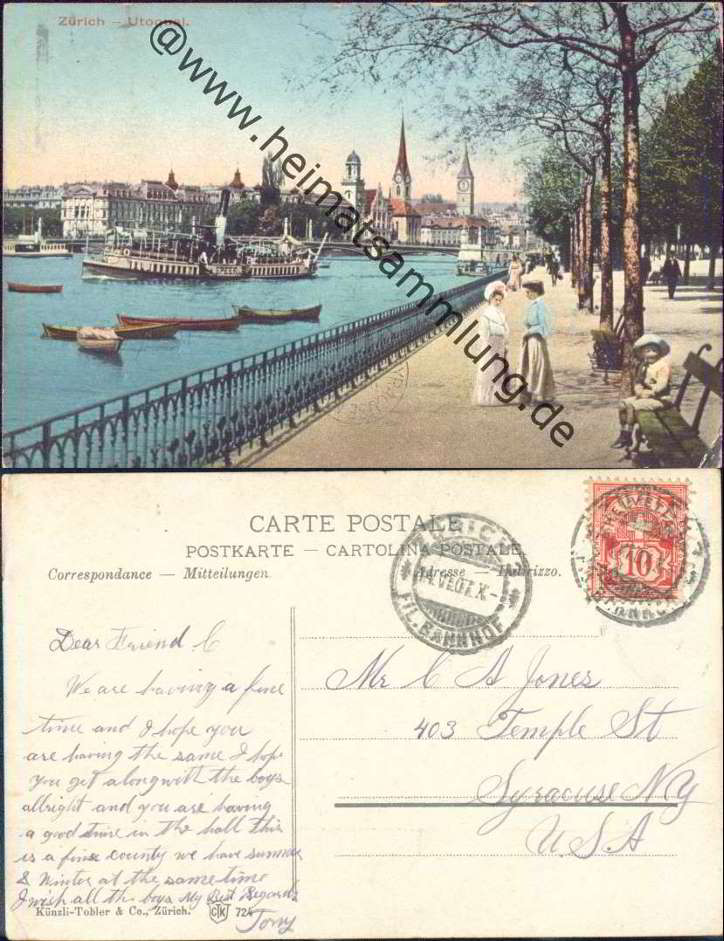 Zürich – Utoquai.
@www.heimatsammlung.de
CARTE POSTALE
POSTKARTE — CARTOLINA POSTALE.
Correspondance — Mitteilungen
Adresse — Indirizzo.
ZÜRICH
VI.07.X-
FIL. BAHNHOF
HELVETIA
10
Dear Friend C
We are having a fine
time and I hope you
are having the same I hope
you get along with the boys
allright and you are having
a good time in the hall this
is a fine county we have summer
& Winter at the same time
I wish all the boys My Best Regards
Tony
Mr C A Jones
403 Temple St
Syracuse NY
U.S.A
Künzli-Tobler & Co., Zürich.
CTK
724